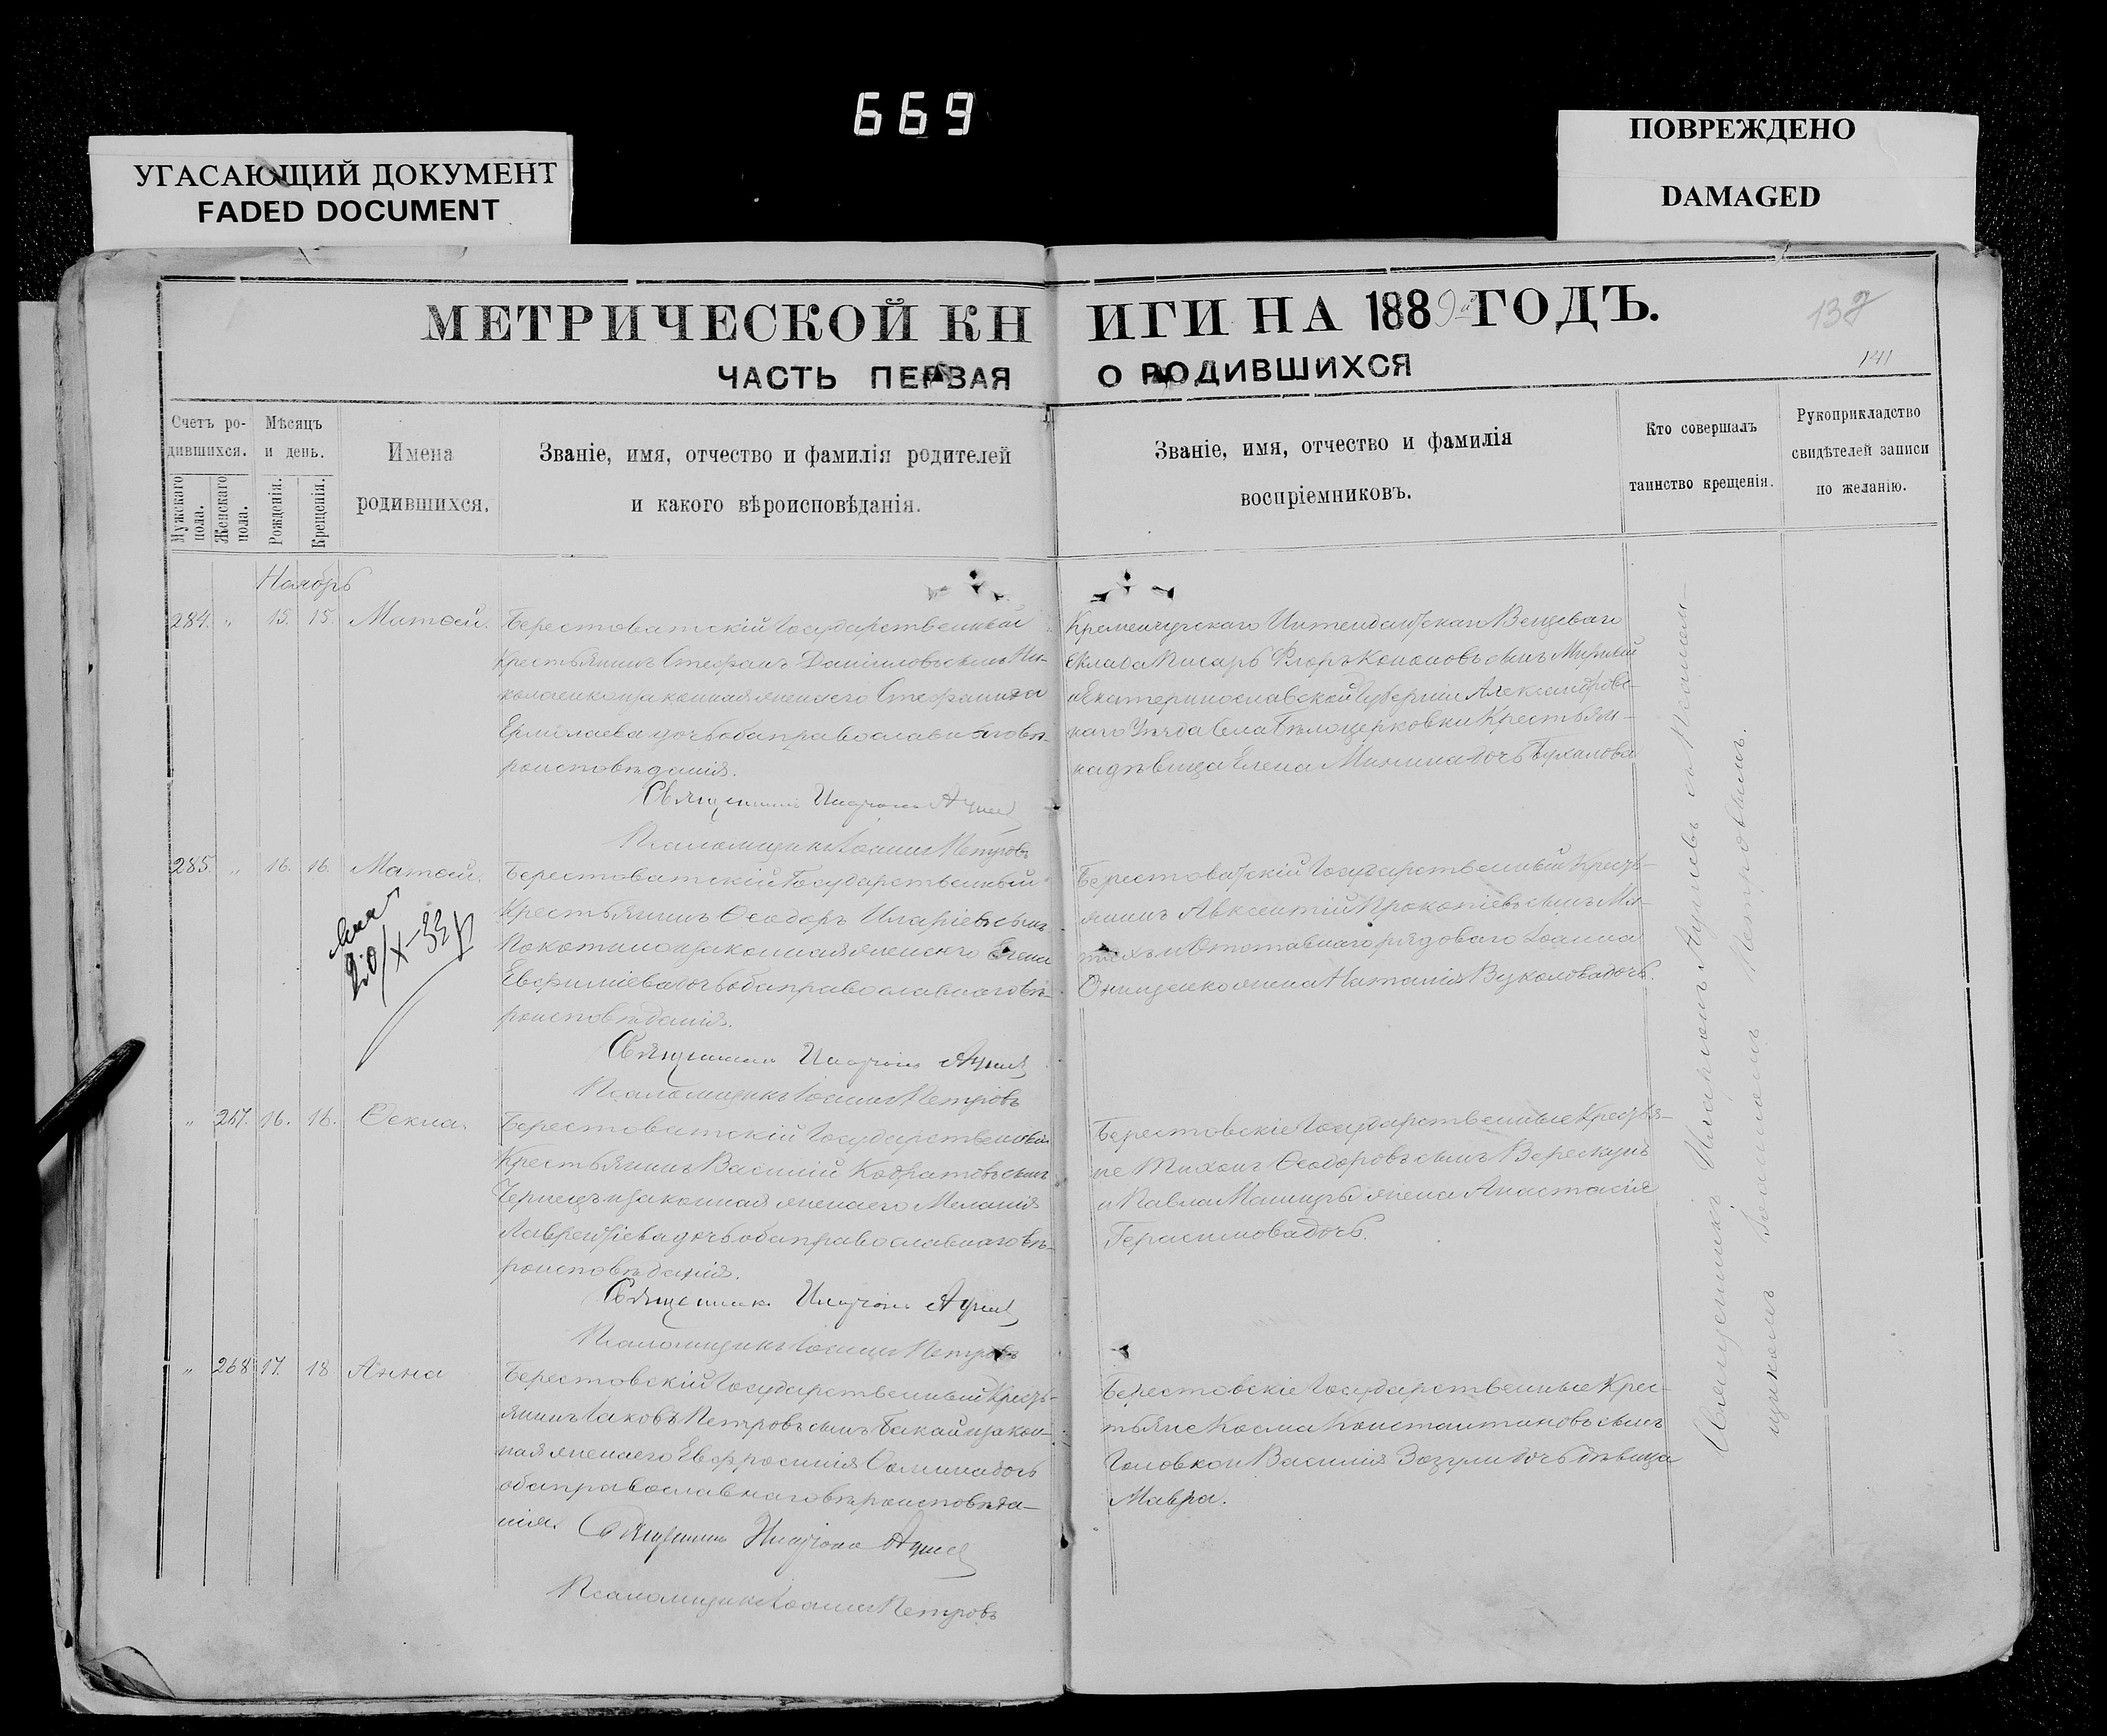 669
УГАСАЮЩИЙ ДОКУМЕНТ
FADED DOCUMENT
ПОВРЕЖДЕНО
DAMAGED
МЕТРИЧЕСКОЙ КНИГИ НА 1889 ГОДЪ.
ЧАСТЬ ПЕРВАЯ О РОДИВШИХСЯ
141
Счетъ родившихся.
Мужскаго пола.
Женскаго пола.
Мѣсяцъ и день.
Рожденія.
Крещенія.
Имена родившихся.
Званіе, имя, отчество и фамилія родителей
и какого вѣроисповѣданія.
Званіе, имя, отчество и фамилія
воспріемниковъ.
Кто совершалъ
таинство крещенія.
Рукоприкладство
свидѣтелей записи
по желанію.
Ноябрь
284. „ 15. 15.
Берестоватскій Государственный
Крестьянинъ Стефанъ Даніиловъ сынъ Ни-
колаенко и законная жена его Стефанида
Ермолаева дочь оба православнаго вѣ-
роисповѣданія.
Священникъ Иларіонъ
Псаломщикъ Іоаннъ Петровъ
Кременчугскаго Интендантскаго Вещеваго
Склада Писарь Флоръ Кононовъ сынъ
и Екатеринославской Губерніи Александровс-
каго Уѣзда Села Бѣлоцерковки Крестьян-
ка дѣвица Елена Минина дочь
285. „ 16. 16. Матѳей.
Берестоватскій Государственный
Крестьянинъ Ѳеодоръ Иларіевъ сынъ
Покотило и законная жена его Елена
Евфиміева дочь оба православнаго вѣ-
роисповѣданія.
Священникъ Иларіонъ
Псаломщикъ Іоаннъ Петровъ
Берестоватскій Государственный Кресть-
янинъ Авксентій Прокопіевъ сынъ
и Отставнаго рядоваго Іоанна
Онищенко жена Наталія Вуколова дочь.
20/X-33
„ 267. 16. 16. Ѳекла.
Берестоватскій Государственный
Крестьянинъ Василій Кодратовъ сынъ
Чернецъ и законная жена его Меланія
Лаврентіева дочь оба православнаго вѣ-
роисповѣданія.
Священникъ Иларіонъ
Псаломщикъ Іоаннъ Петровъ
Берестовскіе Государственные Крестья-
не Тихонъ Ѳеодоровъ сынъ Верескунъ
и Павла жена Анастасія
Герасимова дочь.
„ 268 17. 18 Анна
Берестовскій Государственный Кресть-
янинъ Іаковъ Петровъ сынъ Бакай и закон-
ная жена его Евфросинія Ѳомина дочь
оба православнаго вѣроисповѣда-
нія.
Священникъ Иларіонъ
Псаломщикъ Іоаннъ Петровъ
Берестовскіе Государственные Крес-
тьяне Косма Константиновъ сынъ
Головко и Василія Зозули дочь дѣвица
Мавра.
Священникъ Иларіонъ съ Псалом-
щикомъ Іоанномъ Петровымъ.